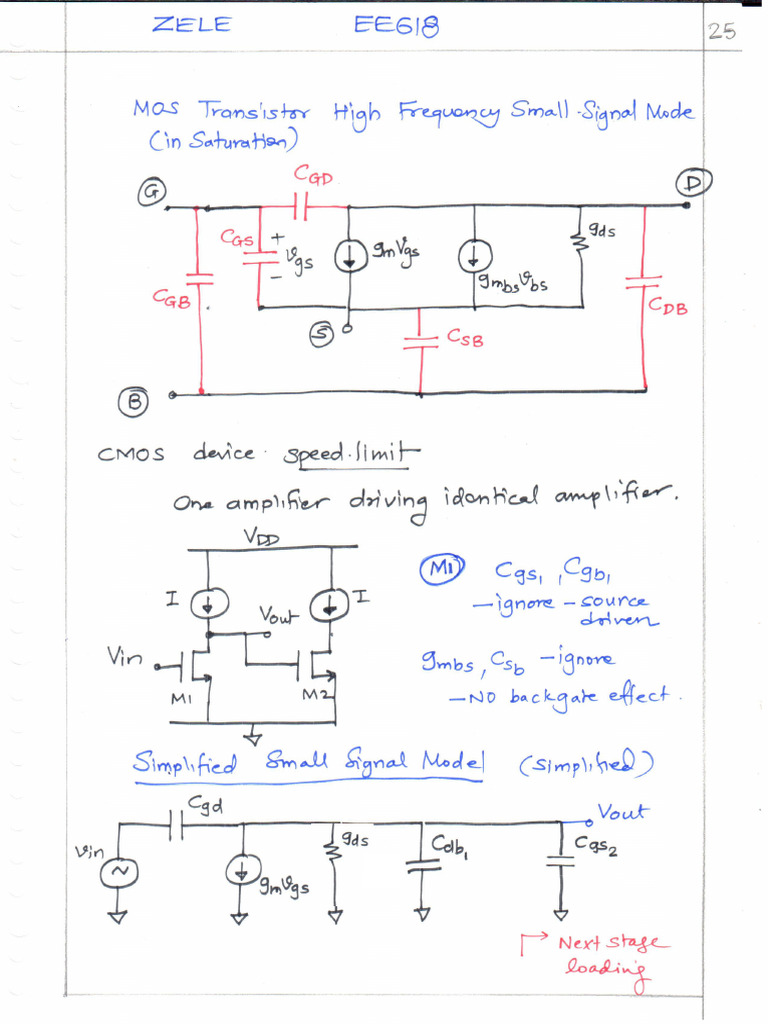 ZELE EE618 25
MOS Transistor High Frequency Small-Signal Mode
(in Saturation)
G CGD D
CGS + vgs - gmVgs gmbsvbs gds
CGB CDB
S CSB
B
CMOS device speed limit
One amplifier driving identical amplifier.
VDD
I Vout I
Vin M1 M2
M1 Cgs1, Cgb1
- ignore - source
driven
gmbs, Csb - ignore
- NO backgate effect.
Simplified Small Signal Model (simplified)
Cgd Vout
vin gmvgs gds Cdb1 Cgs2
Next stage
loading